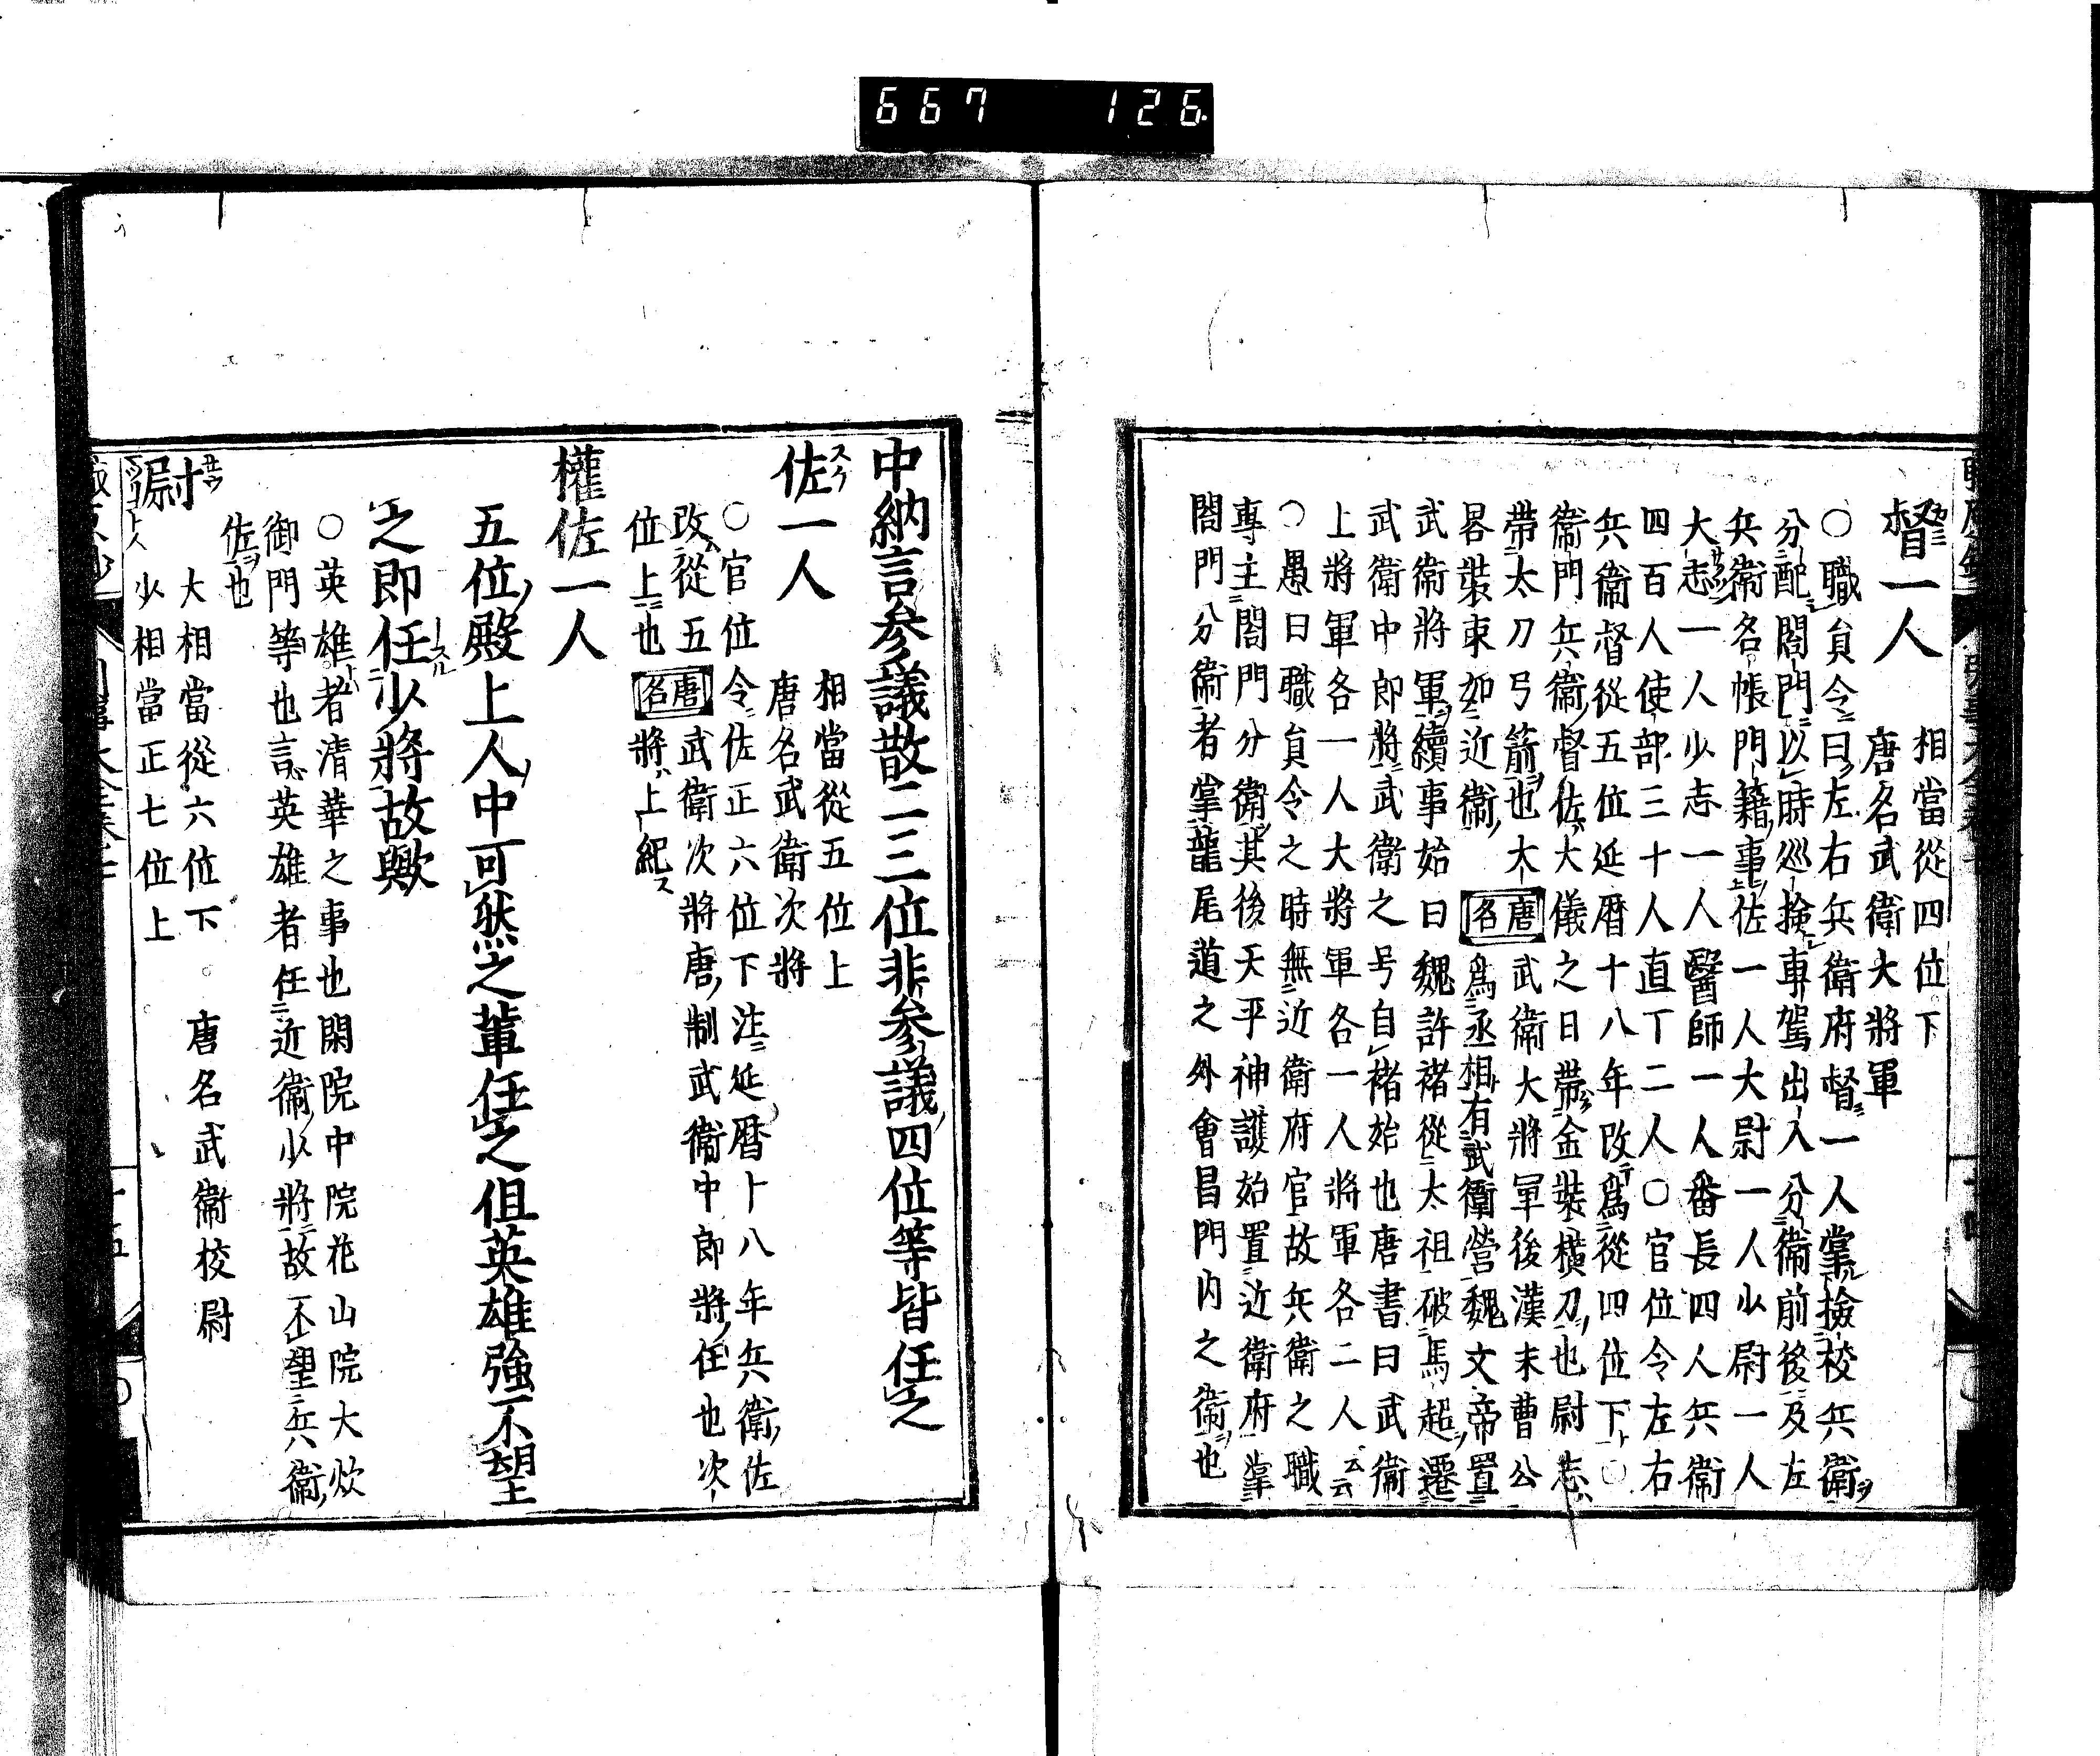 667 126
督一人 相當從四位下
唐名武衛大將軍
○職員令曰左右兵衛府督一人掌撿校兵衛
分配閤門以時巡撿車駕出入分衛前後及左
兵衛名帳門籍事佐一人大尉一人少尉一人
大志一人少志一人醫師一人番長四人兵衛
四百人使部三十人直丁二人○官位令左右
兵衛督從五位延暦十八年改爲從四位下○
衛門兵衛督佐大儀之日帶金裝横刀也尉志
帶太刀弓箭也大 唐名 武衛大將軍後漢末曹公
畧裝束如近衛 爲丞相有武衛營魏文帝置
武衛將軍續事始曰魏許褚從太祖破馬超遷
武衛中郎將武衛之号自褚始也唐書曰武衛
上將軍各一人大將軍各一人將軍各二人云云
○愚曰職員令之時無近衛府官故兵衛之職
專主閤門分衛其後天平神護始置近衛府掌
閤門分衛者掌龍尾道之外會昌門内之衛也
中納言参議散二三位非参議四位等皆任之
佐一人 相當從五位上
唐名武衛次將
○官位令佐正六位下注延暦十八年兵衛佐
改從五 唐名 武衛次將唐制武衛中郎將任也次
位上也 將上紀
權佐一人
五位殿上人中可然之輩任之但英雄強不望
之即任少將故歟
○英雄者清華之事也閑院中院花山院大炊
御門等也言英雄者任近衛少將故不望兵衛
佐也
尉 大相當從六位下 唐名武衛校尉
少相當正七位上